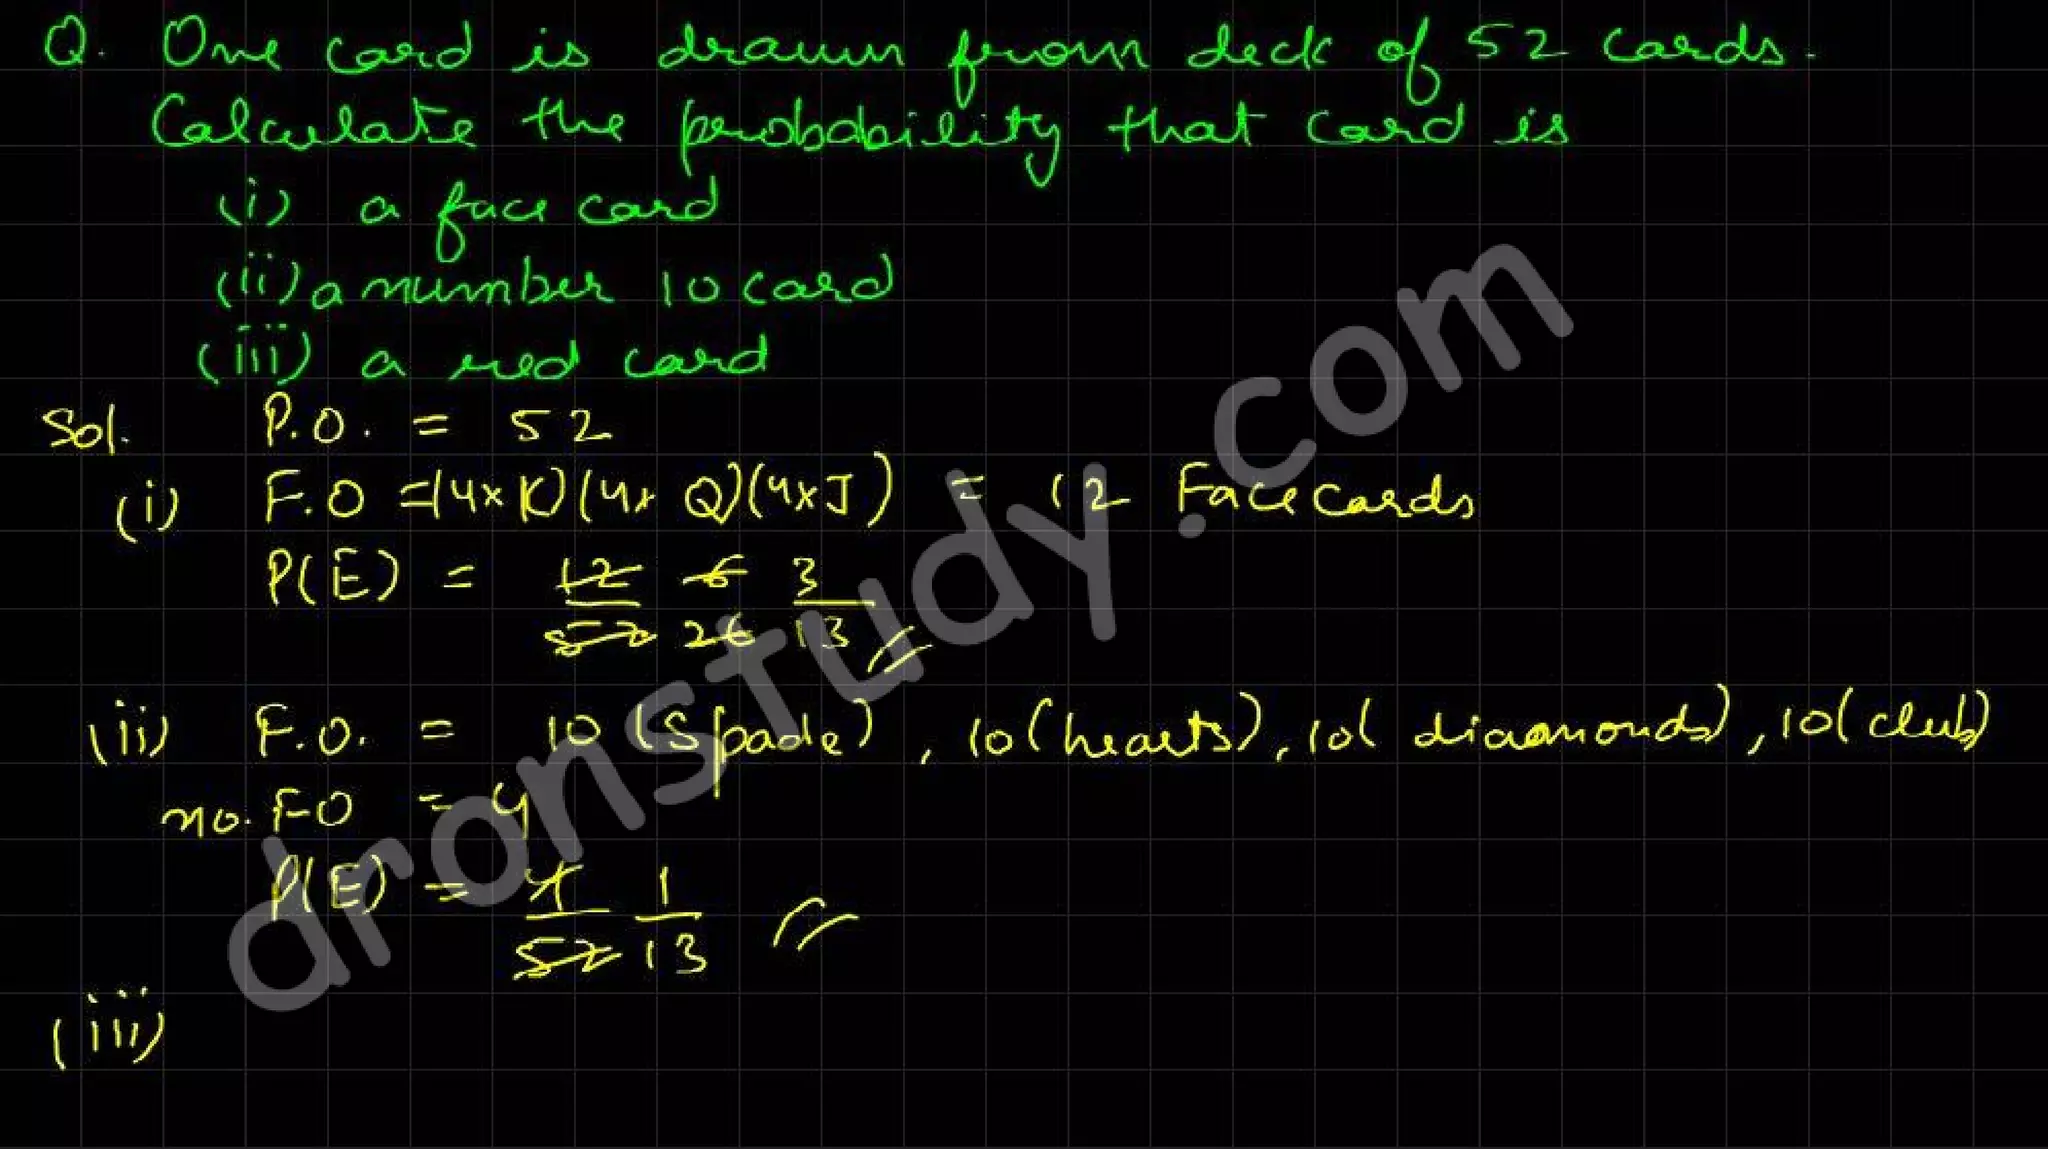 Q. One card is drawn from deck of 52 cards.
Calculate the probability that card is
(i) a face card
(ii) a number 10 card
(iii) a red card
Sol. P.O. = 52
(i) F.O = (4×K)(4×Q)(4×J) = 12 Face cards
P(E) = 12/52 6/26 3/13
(ii) F.O. = 10 (Spade), 10 (hearts), 10( diamonds), 10( club)
no. FO = 4
P(E) = 4/52 1/13
(iii)
dronstudy.com